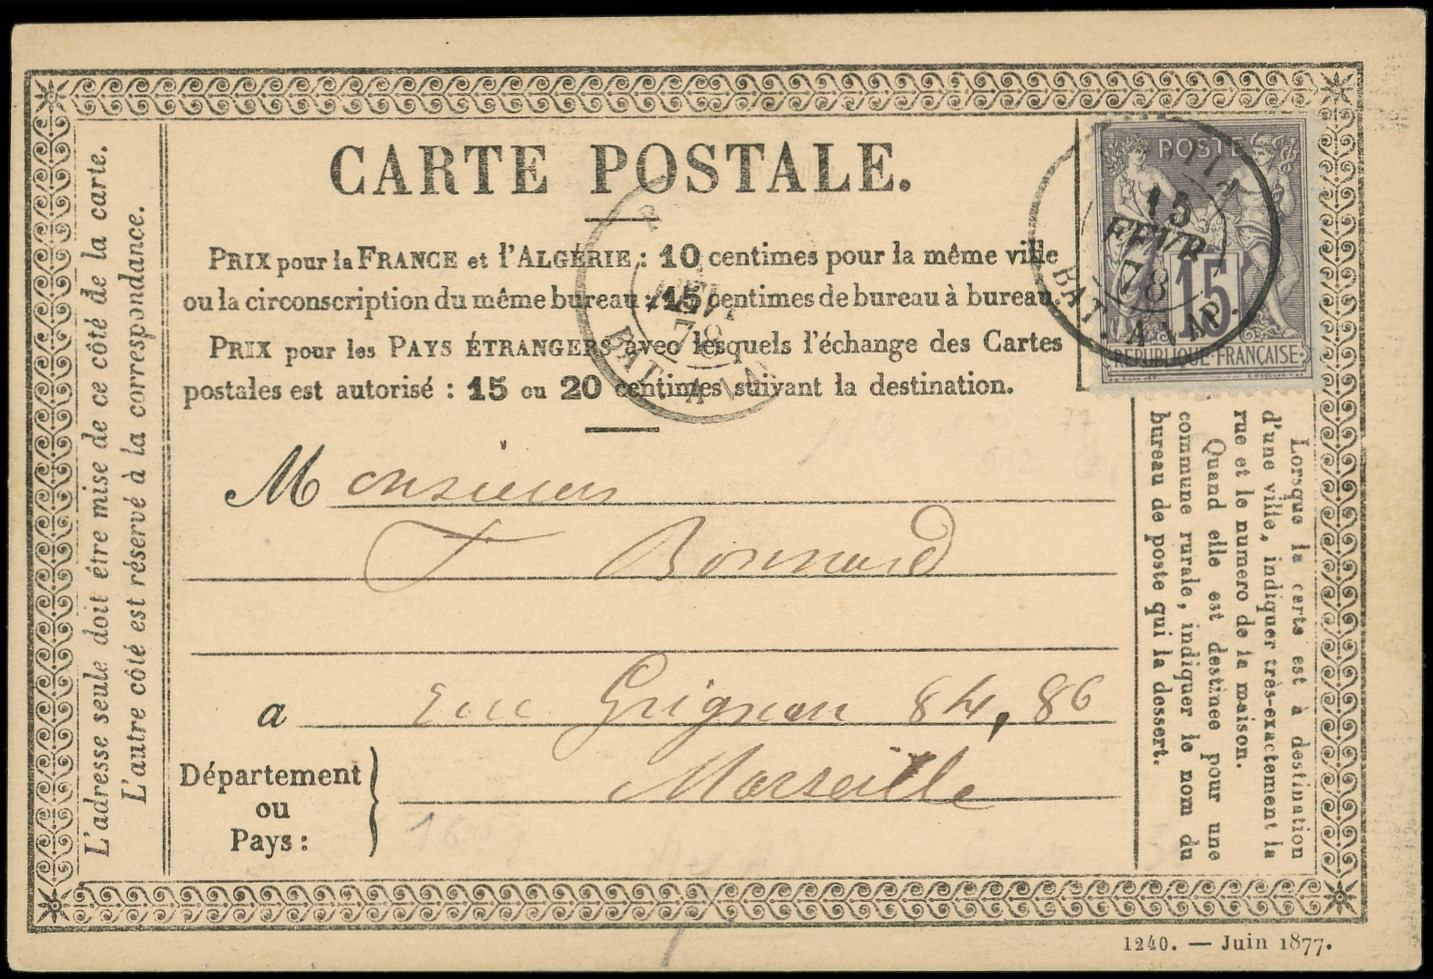 CARTE POSTALE.
PRIX pour la FRANCE et l'ALGÉRIE : 10 centimes pour la même ville
ou la circonscription du même bureau : 15 centimes de bureau à bureau.
PRIX pour les PAYS ÉTRANGERS avec lesquels l'échange des Cartes
postales est autorisé : 15 ou 20 centimes suivant la destination.
POSTE
15
REPUBLIQUE FRANÇAISE
15
FEVR
78
BAT. A VAP.
78
BAT. A VA
Monsieur
F Bonnard
a rue Grignan 84, 86
Département
ou
Pays :
Marseille
L'adresse seule doit être mise de ce côté de la carte.
L'autre côté est réservé à la correspondance.
Lorsque la carte est à destination
d'une ville, indiquer très-exactement la
rue et le numero de la maison.
Quand elle est destinée pour une
commune rurale, indiquer le nom du
bureau de poste qui la dessert.
1240. — Juin 1877.